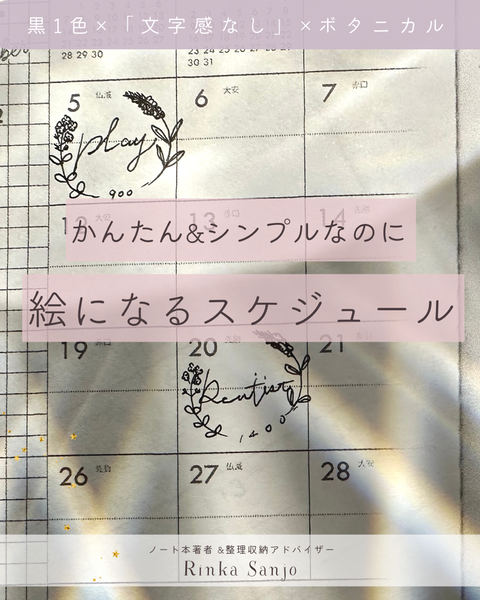 黒1色×「文字感なし」×ボタニカル
28 29 30
23 24 25 26 27 28 29
30 31
5 仏滅 6 大安 7 赤口
play
900
かんたん&シンプルなのに
13 14
絵になるスケジュール
19 20 21
Dentist
1400
26 27 仏滅 28 大安
ノート本著者 &整理収納アドバイザー
Rinka Sanjo